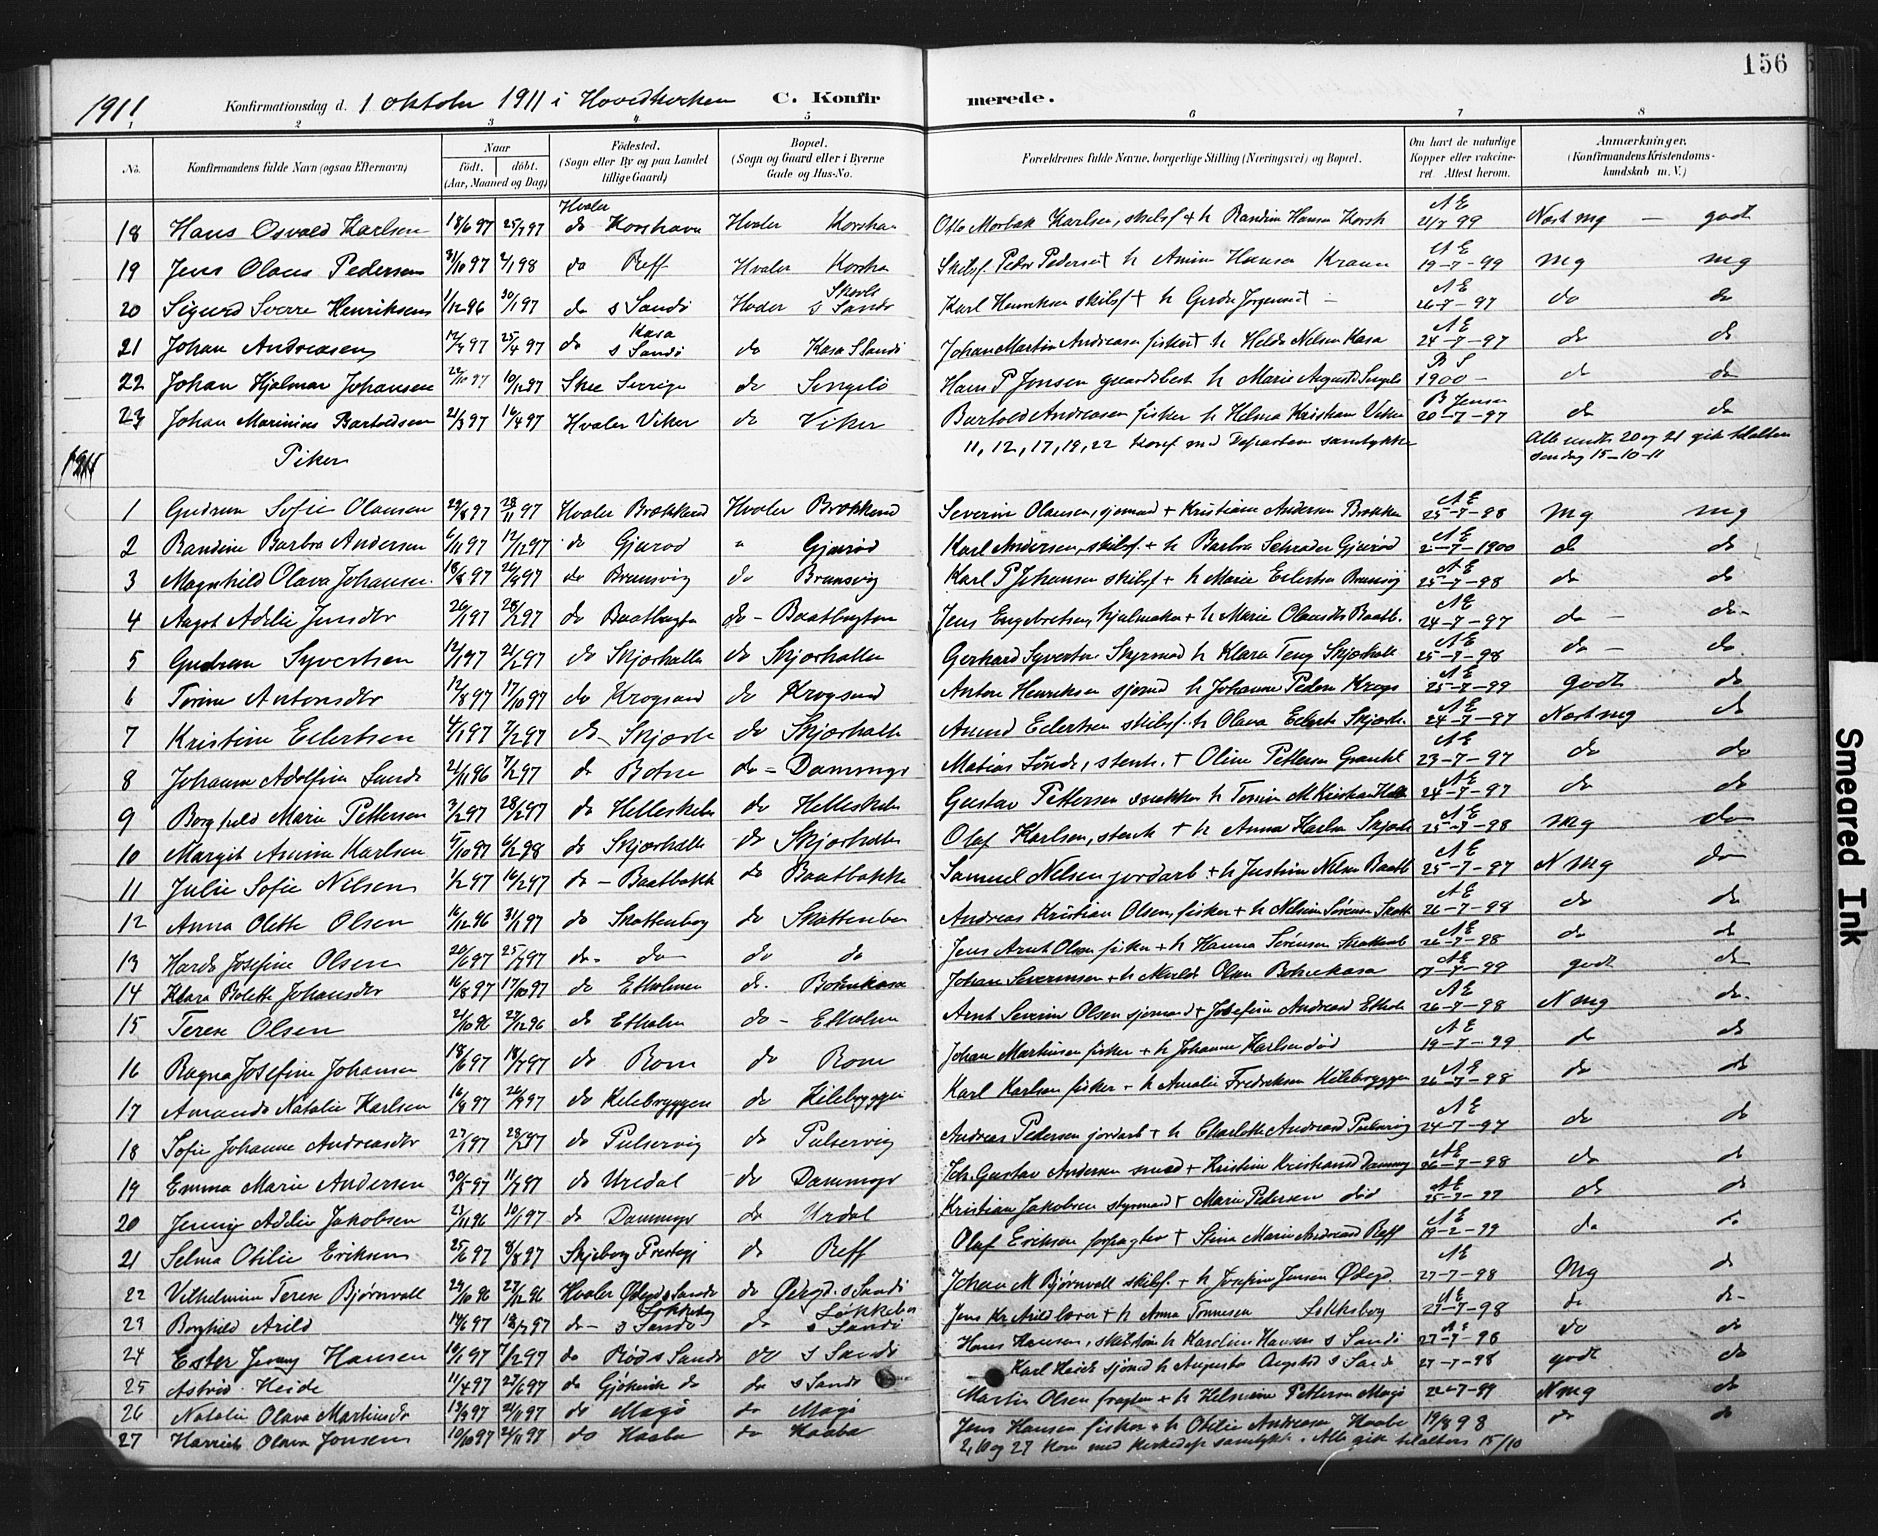 156
1911 Konfirmationsdag d. 1 oktober 1911 i Hovedkirken C. Konfirmerede.
1 2 3 4 5 6 7 8
No. Konfirmandens fulde Navn (ogsaa Efternavn) Naar født. døbt. (Aar, Maaned og Dag) Fødested. (Sogn eller By og paa Landet tillige Gaard) Bopæl. (Sogn og Gaard eller i Byerne Gade og Hus-No. Forældrenes fulde Navne, borgerlige Stilling (Næringsvei) og Bopæl. Om havt de naturlige Kopper eller vakcineret. Attest herom. Anmærkninger. (Konfirmandens Kristendomskundskab m. V.)
18 Hans Osvald Karlsen 18/6 97 25/7 97 Hvaler do Korshavn Hvaler Korshav Karlsen, skibsf + h Randine Hansen Korsh AE 21/7 99 godt
19 Jens Olaus Pedersen 31/10 97 2/1 98 do Reff Hvaler Korsha Skibsf. Peder Pedersen + h Hansen AE 19-7-99 Mg mg
20 Sigurd Sverre Henriksen 1/12 96 30/1 97 do s Sandø Hvaler s Sandø Karl Henriksen skibsf + h AE 26-7-97 do do
21 Johan Andreasen 25/4 97 do Kasa s Sandø do Kasa S Sandø Johan Martin Andreasen fisker + h Nilsen Kasa AE 24-7-97 do do
22 Johan Hjalmar Johansen 22/10 97 19/12 97 Skee Sverige do Singelø Hans P Jonsen gaardbest h Marie 1900 - do do
23 Johan Marinius Bartoldsen 21/3 97 16/4 97 Hvaler Viker do Viker Bartold Andreasen fisker h Helma Kristians Viker B Jensen 20-7-97 do do
1911 Piker 11, 12, 17, 19, 22 konf med Departem samtykke Alle undt 20 og 21 gik tilalters søndag 15-10-11
1 Gudrun Sofie Olausen 29/8 97 28/11 97 Hvaler Brækkerød Hvaler Brækkerød Severin Olausen, sjømand + Kristiane Andersen Brække AE 25-7-98 Mg mg
2 Randine Barbra Andersen 6/11 97 12/12 97 do Gjurød " Gjurød Karl Andersen, skibsf. + h Barbra Schrader Gjurød AE 1900 do do
3 Magnhild Olava Johansen 18/8 97 26/9 97 do Brunsvig do Brunsvig Karl P Johansen skibsf + h Marie Eilertsen Brunsvig AE 25-7-98 do do
4 Aagot Adele Jensdtr 26/1 97 28/2 97 do Baatbugta do - Baatbugten Jens Engebretsen, + h Marie Baatb. AE 24-7-97 do - do -
5 Gudrun Syvertsen 12/1 97 21/2 97 do Skjærhalle do Skjærhallen Gerhard Syvertsen h Klara Teng Skjærhall AE 25-7-98 do - do
6 Torine Antonsdtr 12/8 97 17/10 97 do Krogsand do Krogsund Anton Henriksen sjømd h Johanne Peders Krogs AE 25-7-99 godt do
7 Kristine Eilertsen 4/1 97 7/2 97 do Skjærh do Skjærhall Amund Eilertsen skibsf. h Olava Eilerts Skjærh. AE 24-7-97 do
8 Johanne Adolfine Lunde 2/11 96 7/2 97 do Botne do - Dammyr Matias Lunde, stenh. + Oline Pettersen AE 23-7-97 do do
9 Borghild Marie Pettersen 3/2 97 28/2 97 do Helleskilen do Helleskilen Gustav Pettersen snekker h M Kristians AE 24-7-97 do do
10 Margit Amine Karlsen 5/10 97 6/2 98 do Skjærhalle do Skjærhalle Olaf Karlsen, stenh + h Anna Karlsn Skjærh AE 25-7-98 Mg do
11 Julie Sofie Nilsen 1/2 97 16/2 97 do - Baatbakk do Baatbakke Samuel Nilsen jordarb + h Justine Nilsen Baatb AE 25-7-97 N Mg do
12 Anna Olette Olsen 16/12 96 31/1 97 do Skottenberg do Skottenber Andreas Kristian Olsen, fisker + h Nilsine Sørensen Skott AE 26-7-98 do do
13 Harda Josefine Olsen 20/6 97 25/7 97 do - do do do Jens Arnt Olsen fisker + h Hanna Sørensen AE 26-7-98 do do
14 Klara Bolette Johansdtr 16/8 97 17/10 97 do Etholmen do Botnekasa Johan Severinsen + h Olsen Botnekasa AE 17-7-99 godt do
15 Terese Olsen 2/10 96 27/12 96 do Etholm do - Etholm Arnt Severin Olsen sjømand + Josefine Andreasd Ethol AE 26-7-98 N mg do
16 Ragna Josefine Johansen 18/6 97 18/7 97 do Rom do Rom Johan Martinsen fisker + h Johanne Karlsen død AE 19-7-99 do do
17 Amanda Natalie Karlsen 16/8 97 26/9 97 do Kilebryggen do Kilebryggen Karl Karlsen fisker + h Amalie Fredriksen Kilebryggen AE 26-7-98 do do
18 Sofie Johanne Andreasdtr 27/1 97 28/2 97 do Pulservig do Pulservig Andreas Pedersen jordarb + h Charlotte Andreasd Pulservig AE 24-7-97 do do
19 Emma Marie Andersen 30/5 97 11/7 97 do Urdal do Dammyr Joh. Gustav Andersen smed + Kristine Kristiansd Dammyr AE 26-7-98 do do
20 Jenny Adele Jakobsen 27/11 96 10/1 97 do Dammyr do Urdal Kristian Jakobsen styrmand + Marie Pedersen død AE 25-7-97 do do
21 Selma Otilie Eriksen 25/6 97 8/8 97 Skjeberg Prestegj do Reff Olaf Eriksen forpagter + Stine Marie Andreasd Reff AE 19-2-99 do do
22 Vilhelmine Terese Bjørnvall 24/10 96 27/12 96 Hvaler Ødegd s Sandø do Ødegd. s Sandø Johan M Bjørnvall skibsf. + h Josefine Jensen Ødegd. AE 27-7-98 Mg do
23 Borghild Arild 14/6 97 18/7 97 do - Løkkeberg s Sandø do Løkkeber s Sandø Jens Kr Arild lærer + h Anna Tønnesen Løkkeberg AE 27-7-98 do do -
24 Ester Jenny Hansen 10/1 97 7/2 97 do Rød s Sandø do s Sandø Hans Hansen, h Karoline Hansen s Sandø AE 27-7-98 do do
25 Astrid Heide 11/4 97 27/6 97 do Gjøkvik do do s Sandø Karl Heide sjømd h Augusta s Sandø 27-7-98 godt do
26 Natalie Olava Martinsdtr 13/9 97 21/11 97 do Magø do Magø Martin Olsen + h Helmine Pettersen Magø 22-7-99 N mg do
27 Harriet Olava Jensen 10/10 97 21/11 97 do Haaba do Haaba Jens Hansen fisker + h Otilie Andreasen Haabe 19/8 98 do do
2, 10 og 27 konf med kirkedep samtykke. Alle gik tilalters 15/10
Smeared Ink